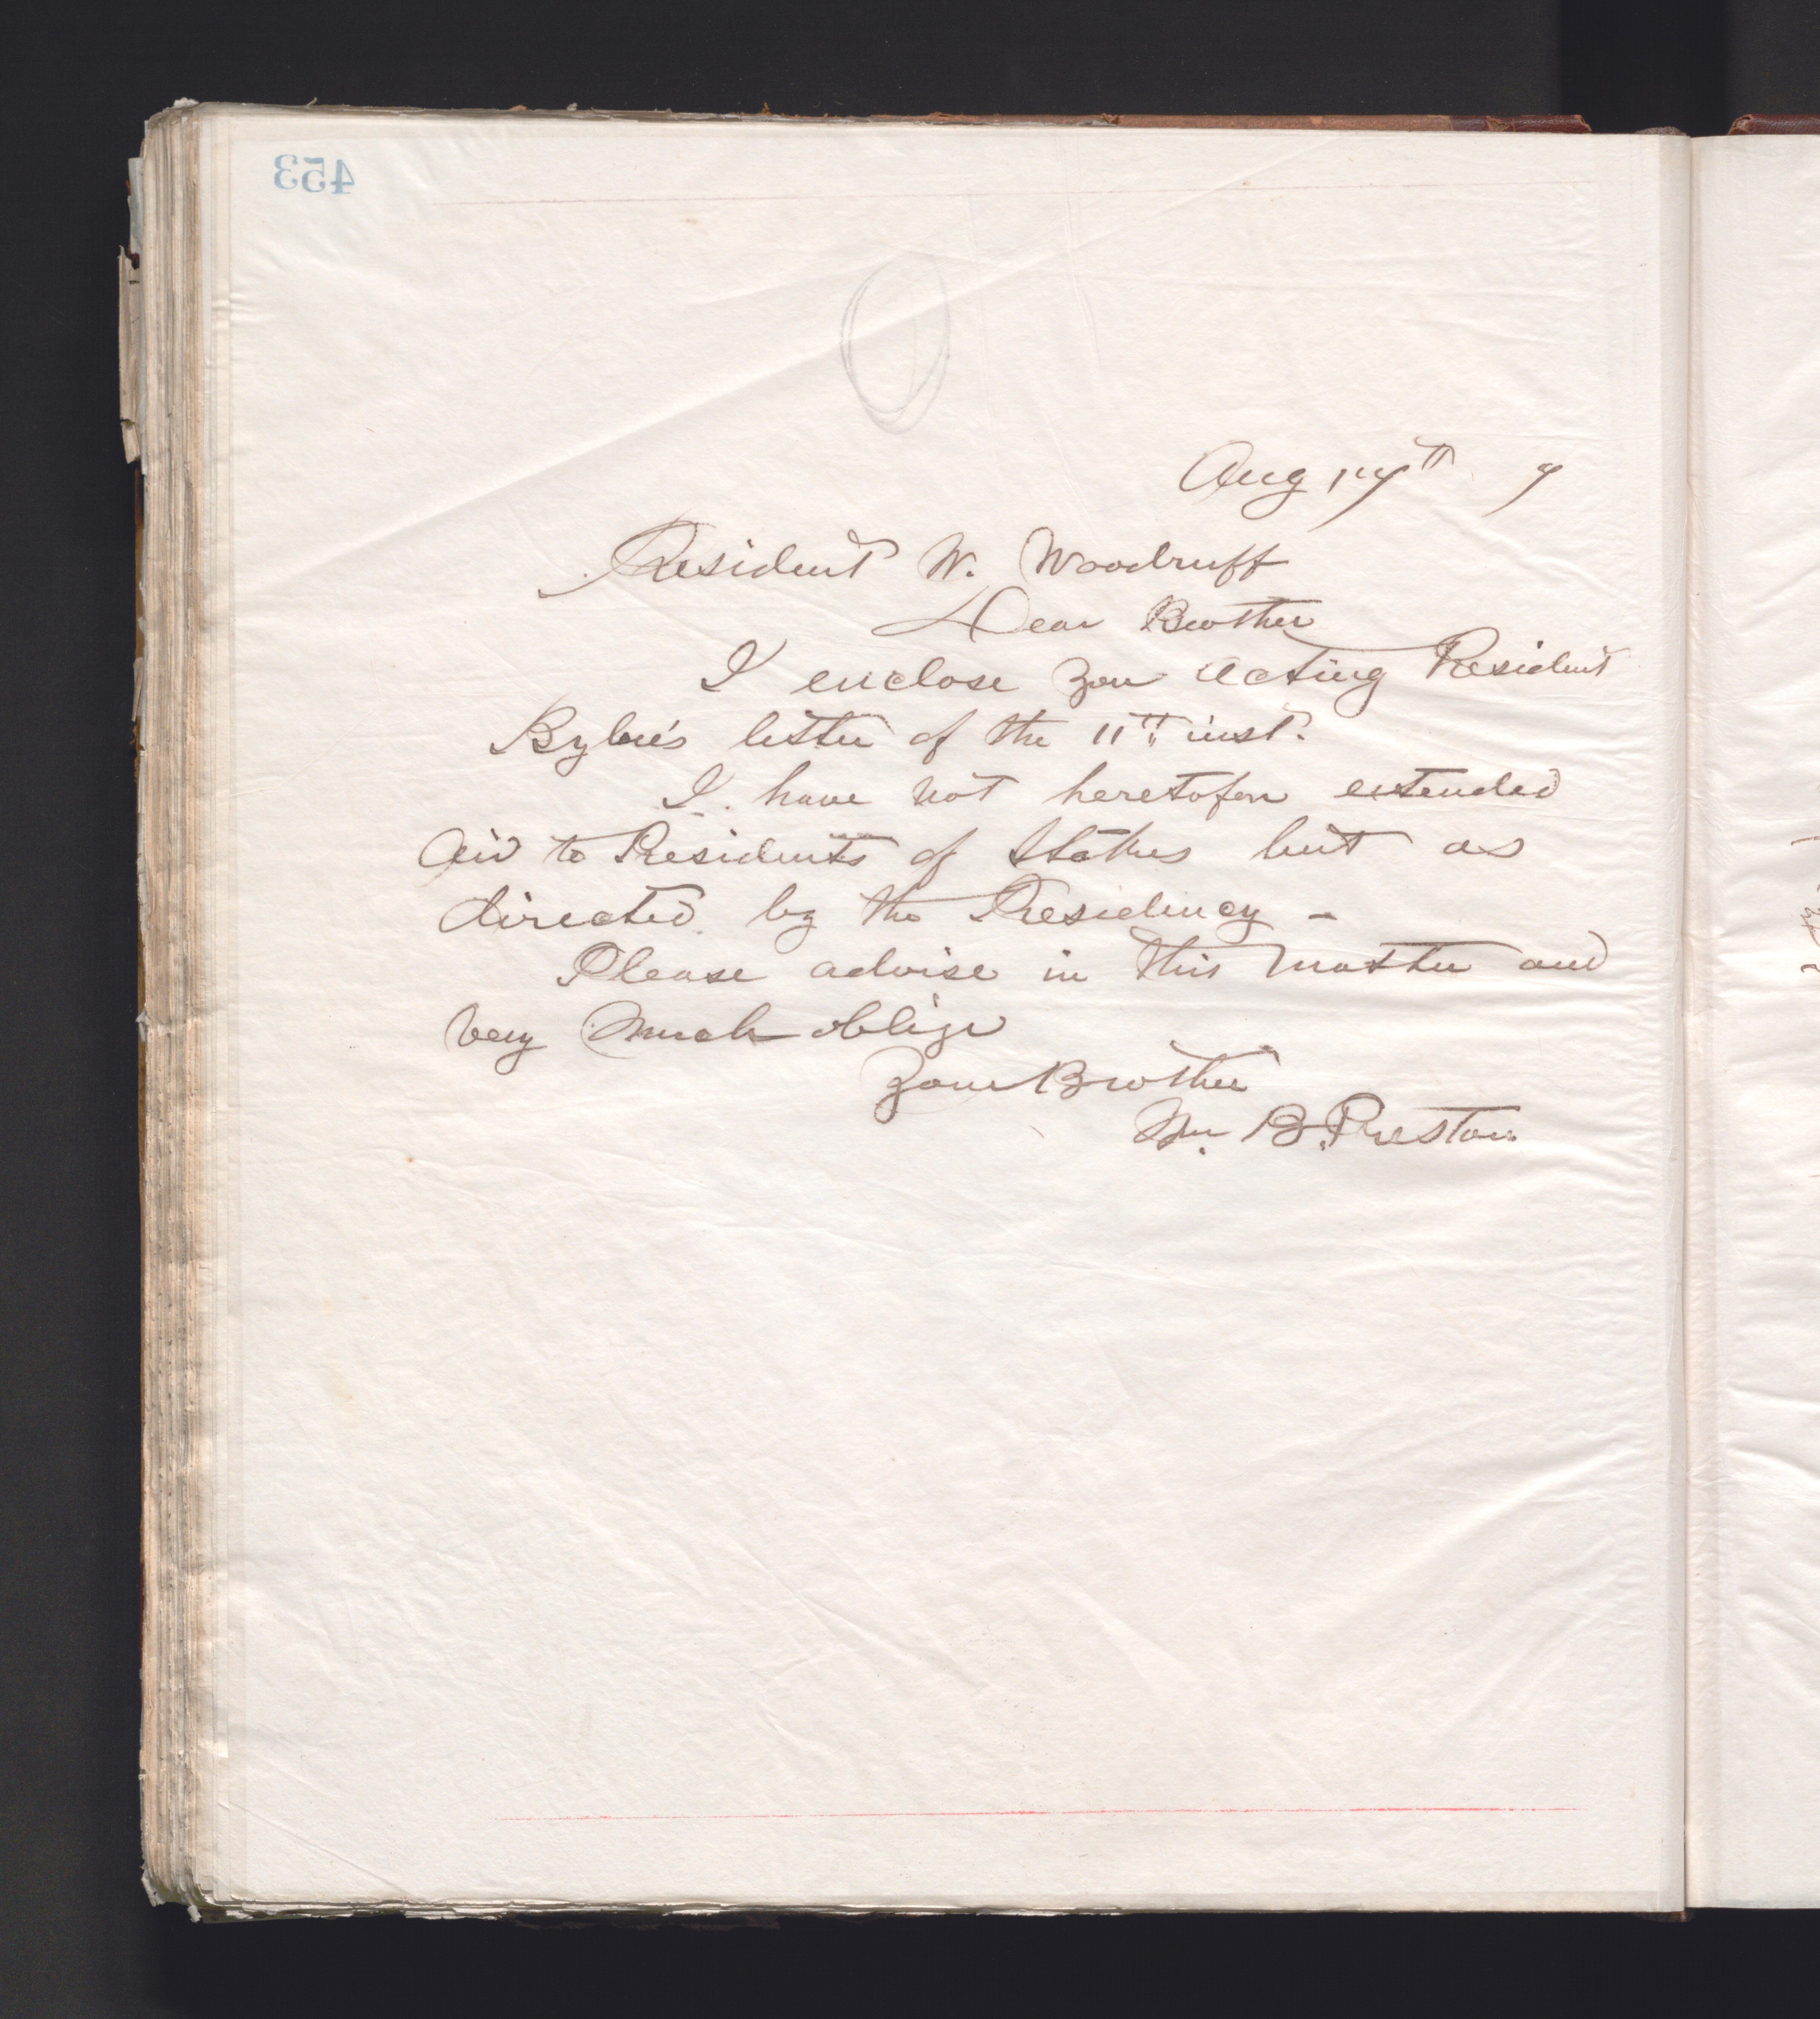 453
Aug 17th 7
President W. Woodruff
Dear Brother
I enclose you acting President
letter of the 11th inst.
I have not heretofore extended
aid to Presidents of Stakes but as
directed by the Presidency -
Please advise in this matter and
very much oblige
Your Brother
Wm. B. Preston